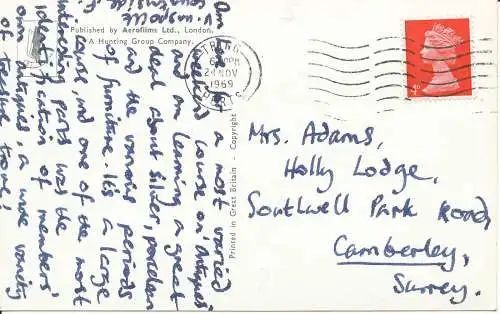 Published by Aerofilms Ltd., London.
A Hunting Group Company.
Printed in Great Britain - Copyright
TRING
6 PM
24 NOV
1969
HERTS
4D
Mrs. Adams,
Holly Lodge,
Southwell Park Road
Camberley,
Surrey.
Am
a most varied
course on 'Antiques'
and am learning a great
deal about silver, porcelain
and the various periods
of furniture. It's a large
course, and one of the most
interesting parts was the
identification of members'
own antiques, a wide variety
of treasure trove!